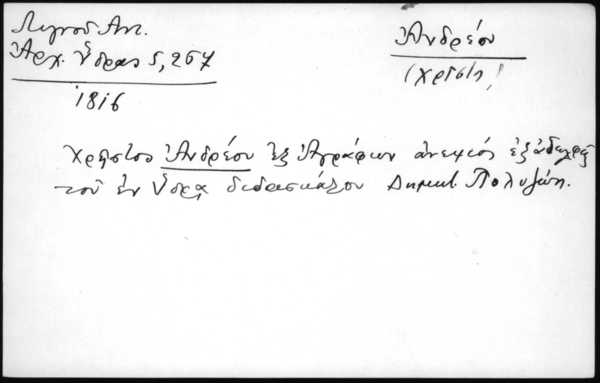 Λιγνοῦ Ἀντ.
Ἀρχ. Ὕδρας 5, 267
1816
Ἀνδρέου
(Χρῆστ)
Χρῆστος Ἀνδρέου ἐξ Ἀγράφων ἀνεψιός
τοῦ ἐν Ὕδρᾳ διδασκάλου Δημητ. Πολυζώη.